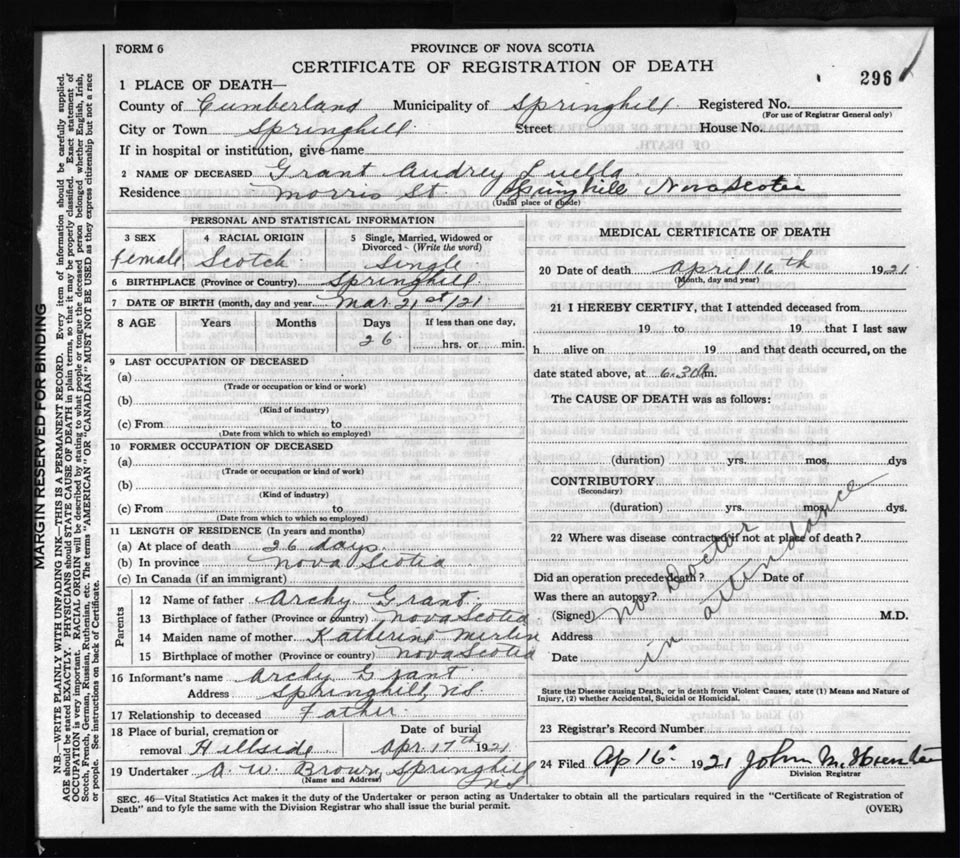 FORM 6
PROVINCE OF NOVA SCOTIA
CERTIFICATE OF REGISTRATION OF DEATH
296
1 PLACE OF DEATH—
County of Cumberland Municipality of Springhill Registered No.
(For use of Registrar General only)
City or Town Springhill Street House No.
If in hospital or institution, give name
2 NAME OF DECEASED Grant Audrey Luella
Residence Morris St. Springhill Nova Scotia
(Usual place of abode)
PERSONAL AND STATISTICAL INFORMATION
3 SEX
female
4 RACIAL ORIGIN
Scotch
5 Single, Married, Widowed or
Divorced - (Write the word)
Single
6 BIRTHPLACE (Province or Country) Springhill
7 DATE OF BIRTH (month, day and year) Mar 21st/21
8 AGE Years Months Days If less than one day,
26 hrs. or min.
9 LAST OCCUPATION OF DECEASED
(a)
(Trade or occupation or kind or work)
(b)
(Kind of industry)
(c) From to
(Date from which to which so employed)
10 FORMER OCCUPATION OF DECEASED
(a)
(Trade or occupation or kind of work)
(b)
(Kind of industry)
(c) From to
(Date from which to which so employed)
11 LENGTH OF RESIDENCE (In years and months)
(a) At place of death 26 days
(b) In province Nova Scotia
(c) In Canada (if an immigrant)
Parents
12 Name of father Archy Grant
13 Birthplace of father (Province or country) Nova Scotia
14 Maiden name of mother Katherine
15 Birthplace of mother (Province or country) Nova Scotia
16 Informant's name Archy Grant
Address Springhill, N.S.
17 Relationship to deceased Father
18 Place of burial, cremation or Date of burial
removal Hillside Apr 17th 1921
19 Undertaker A. W. Brown, Springhill
(Name and Address) N.S.
MEDICAL CERTIFICATE OF DEATH
20 Date of death April 16th 1921
(Month, day and year)
21 I HEREBY CERTIFY, that I attended deceased from
19 to 19 that I last saw
h alive on 19 and that death occurred, on the
date stated above, at 6.30 P.m.
The CAUSE OF DEATH was as follows:
(duration) yrs. mos. dys
CONTRIBUTORY
(Secondary)
(duration) yrs. mos. dys.
22 Where was disease contracted if not at place of death?
Did an operation precede death? Date of
Was there an autopsy?
(Signed) M.D.
Address
Date
No Doctor
in attendance
State the Disease causing Death, or in death from Violent Causes, state (1) Means and Nature of
Injury, (2) whether Accidental, Suicidal or Homicidal.
23 Registrar's Record Number
24 Filed Ap 16: 1921 John
Division Registrar
SEC. 46—Vital Statistics Act makes it the duty of the Undertaker or person acting as Undertaker to obtain all the particulars required in the "Certificate of Registration of
Death" and to fyle the same with the Division Registrar who shall issue the burial permit. (OVER)
MARGIN RESERVED FOR BINDING
N.B.—WRITE PLAINLY WITH UNFADING INK—THIS IS A PERMANENT RECORD. Every item of information should be carefully supplied.
AGE should be stated EXACTLY. PHYSICIANS should STATE CAUSE OF DEATH in plain terms, so that it may be properly classified. Exact statement of
OCCUPATION is very important. RACIAL ORIGIN will be described by stating to what people or tongue the deceased person belonged whether English, Irish,
Scotch, French, German, Russian, Ruthenian, etc. The terms "AMERICAN" OR "CANADIAN" MUST NOT BE USED as they express citizenship but not a race
or people. See instructions on back of Certificate.